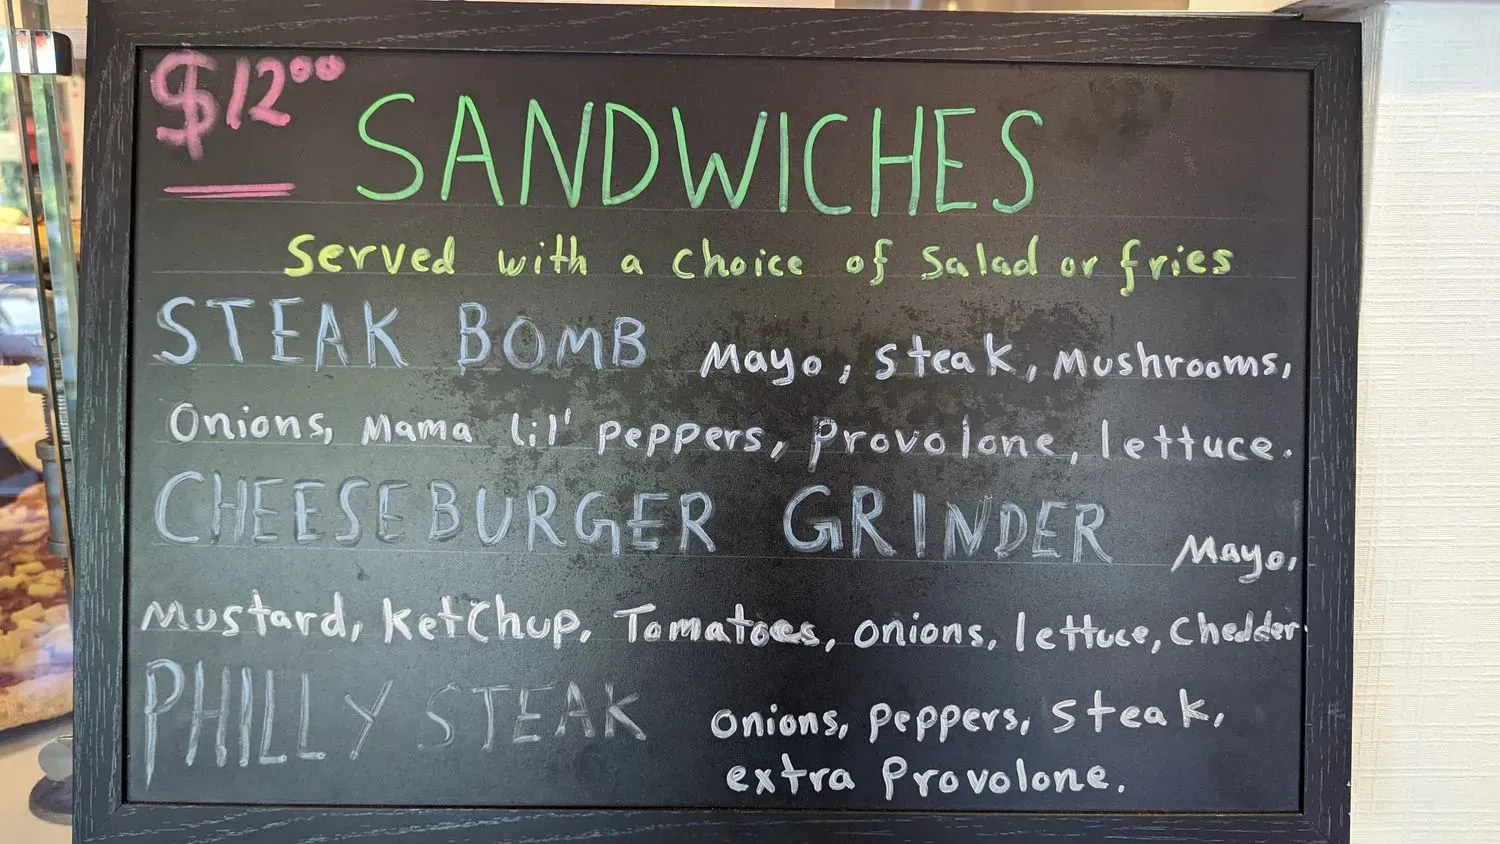 $12.00
SANDWICHES
Served with a choice of Salad or fries
STEAK BOMB Mayo, Steak, Mushrooms,
Onions, Mama lil' Peppers, Provolone, lettuce.
CHEESEBURGER GRINDER Mayo,
Mustard, Ketchup, Tomatoes, onions, lettuce, Chedder.
PHILLY STEAK onions, Peppers, Steak,
extra Provolone.